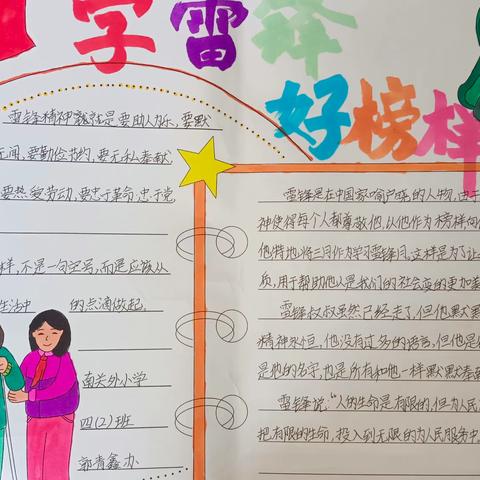 学雷锋
好榜样
雷锋精神就是要助人为乐,要默
无闻,要勤俭节约,要无私奉献,
要热爱劳动,要忠于革命,忠于党
样,不是一句空号,而是应该从
生活中 的点滴做起.
南关外小学
四(2)班
郭青鑫 办
雷锋是在中国家喻户晓的人物,由于
神使得每个人都尊敬他,以他作为榜样向他
他特地将三月作为学习雷锋月,这样是为了让
质,用于帮助他人是我们的社会变的更加美
雷锋叔叔虽然已经走了,但他默默
精神永恒,他没有过多的语言,但他是
是他的名字,也是所有和他一样默默奉献
雷锋说:“人的生命是有限的,但为人民
把有限的生命,投入到无限的为人民服务中